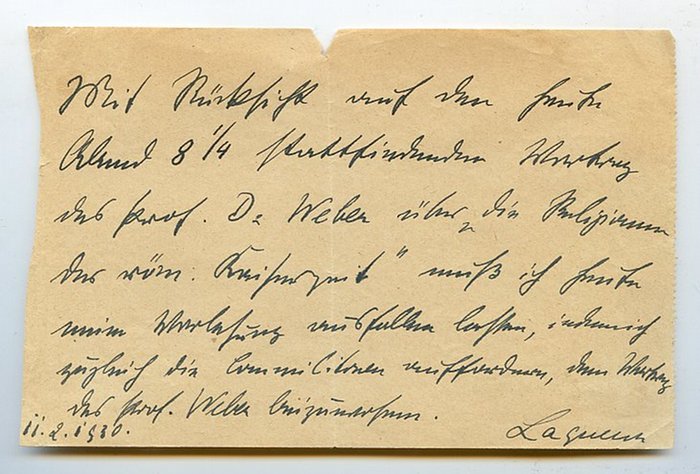 Mit Rücksicht auf den heute
Abend 8 1/4 stattfindenden Vortrag
des Prof. Dr Weber über „die Religionen
der röm. Kaiserzeit“ muß ich heute
meine Vorlesung ausfallen lassen, indem ich
zugleich die Commilitonen auffordere, dem Vortrag
des Prof. Weber beizuwohnen.
11.2.1930. Laqueur